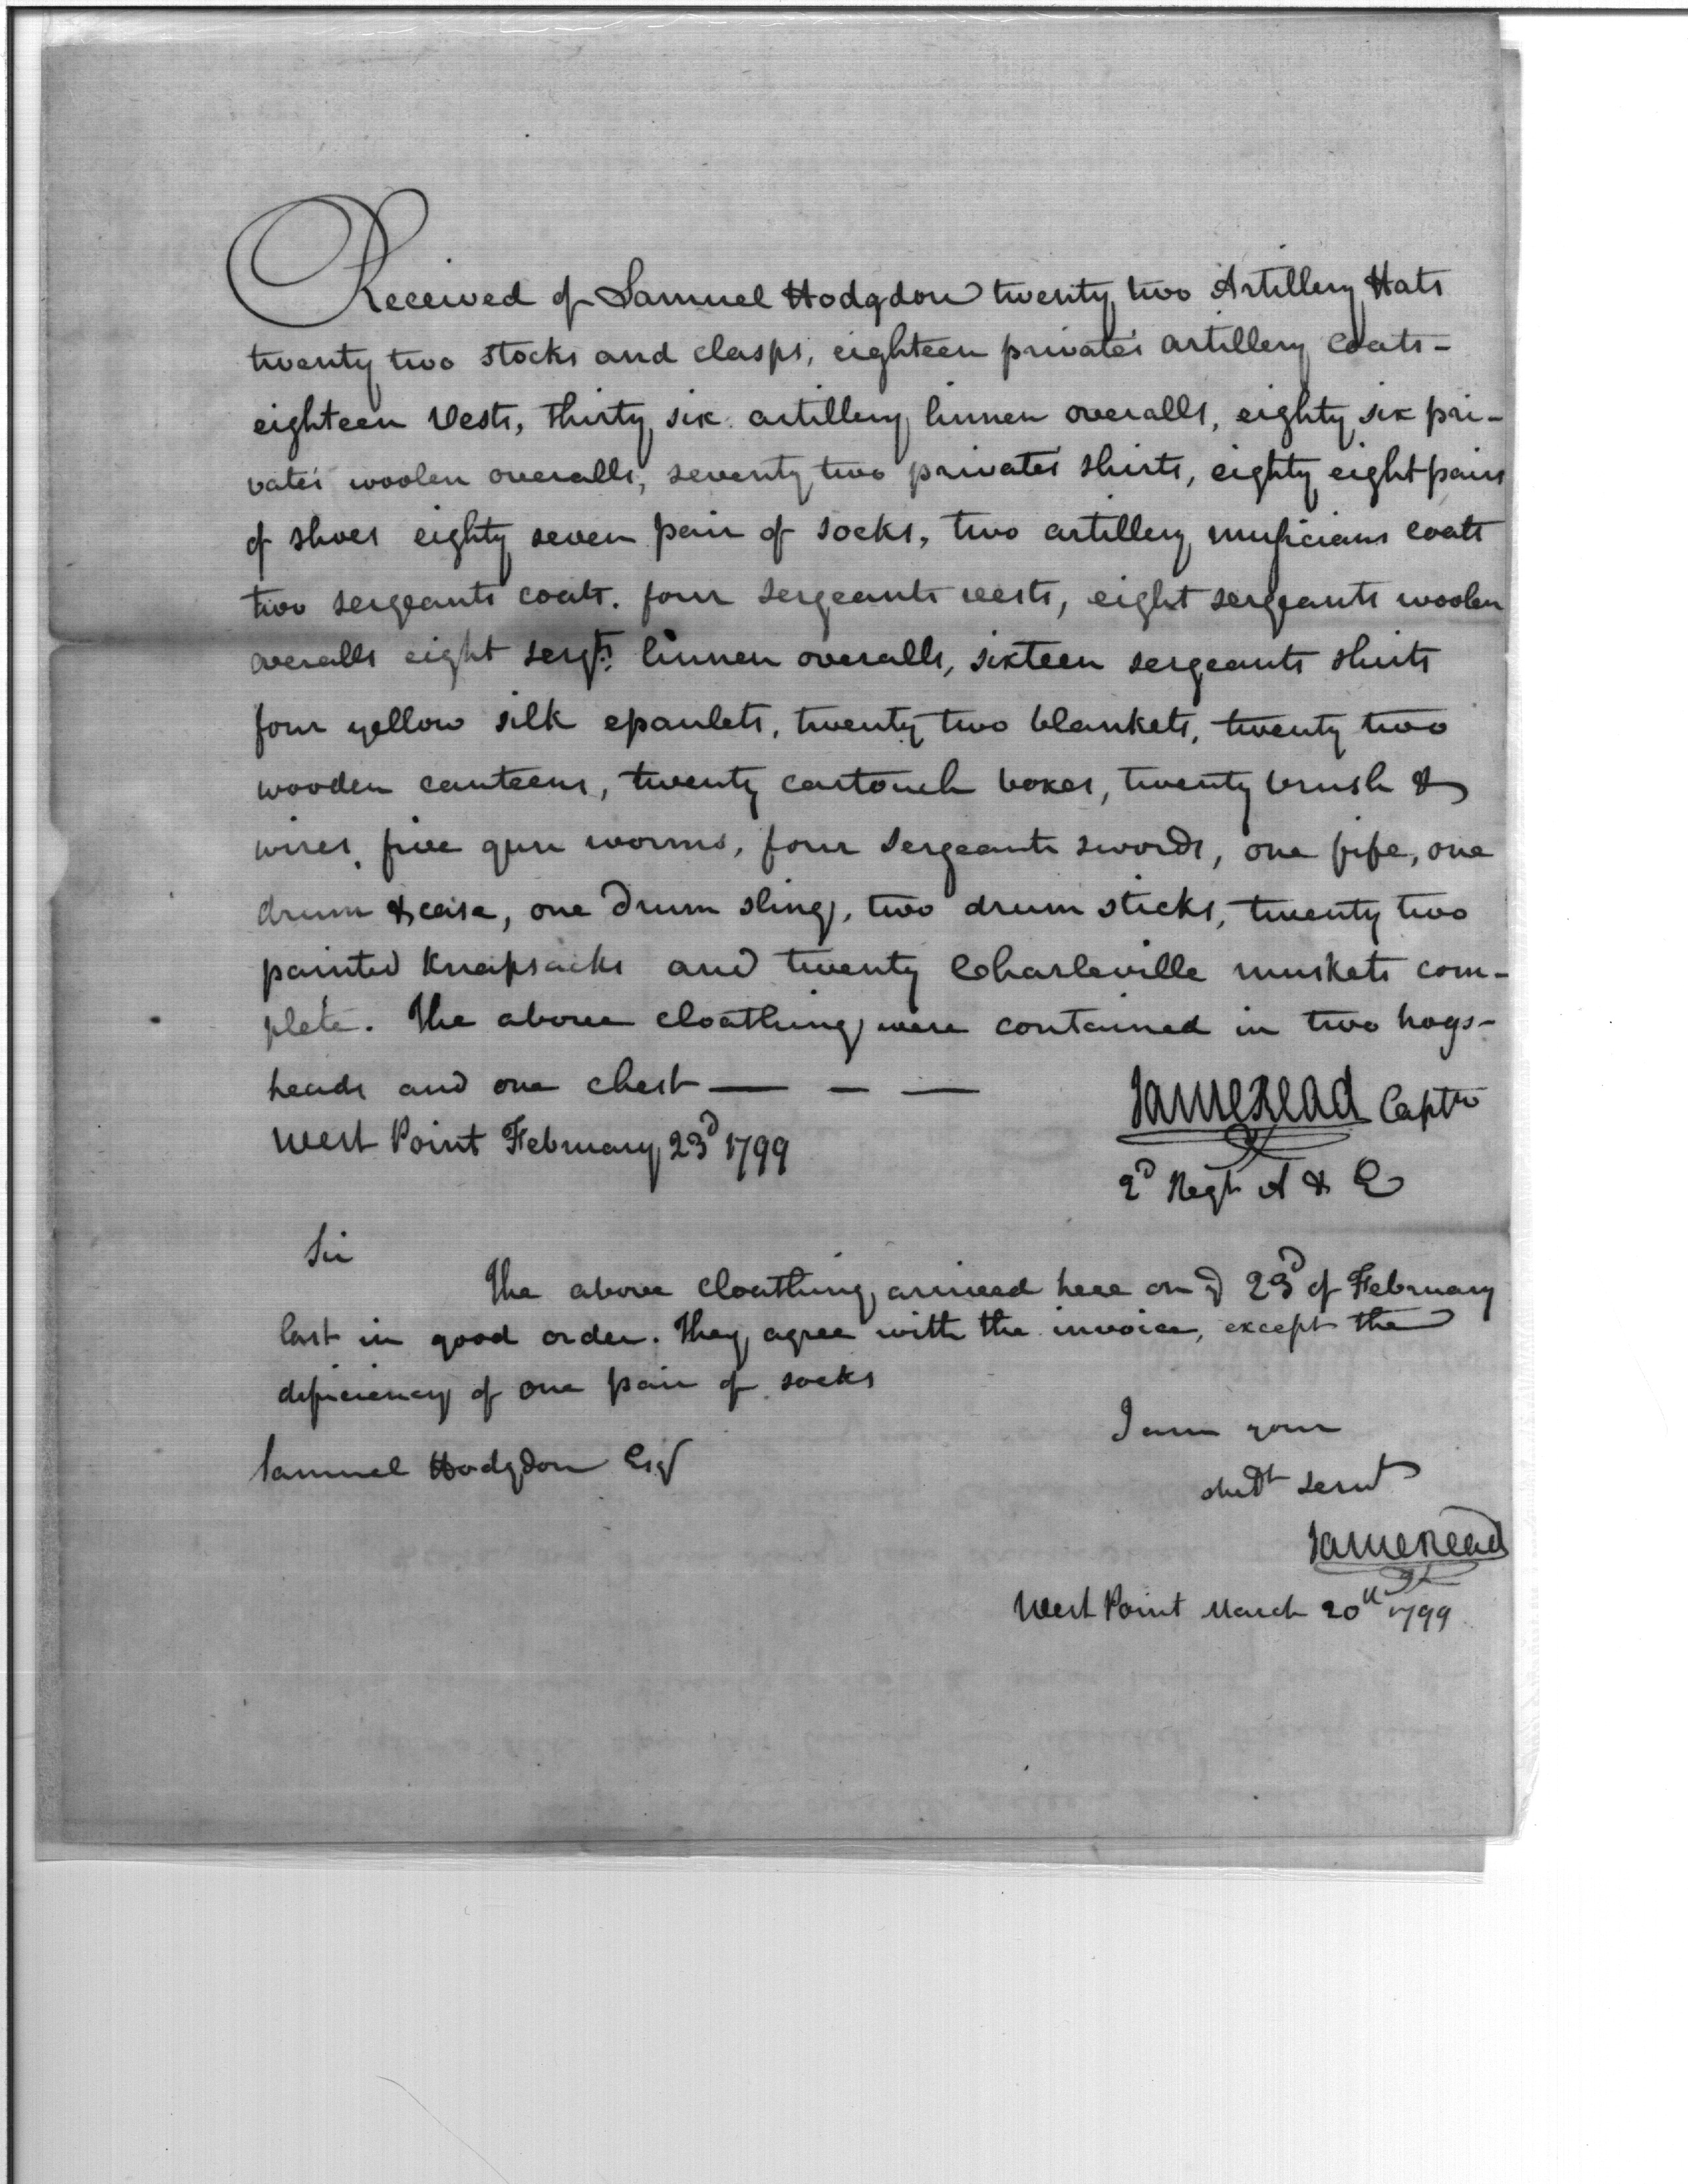 Received of Samuel Hodgdon twenty two Artillery Hats
twenty two stocks and clasps, eighteen private's artillery coats-
eighteen vests, thirty six artillery linnen overalls, eighty six pri-
vate's woolen overalls, seventy two private's shirts, eighty eight pairs
of shoes eighty seven pair of socks, two artillery musicians coats
two sergeants coats. four sergeants vests, eight sergeants woolen
overalls eight sergts. linnen overalls, sixteen sergeants shirts
four yellow silk epaulets, twenty two blankets, twenty two
wooden canteens, twenty cartouch boxes, twenty brush &
wires, five gun worms, four sergeants swords, one fife, one
drum & case, one drum sling, two drum sticks, twenty two
painted knapsacks and twenty Charleville muskets com-
plete. The above cloathing were contained in two hogs-
heads and one chest — — —
James Read Captn
West Point February 23d 1799
2d Regt A & E
Sir
The above cloathing arrived here on ye 23d of February
last in good order. They agree with the invoice, except the
deficiency of one pair of socks
I am your
Samuel Hodgdon Esqr
obedt servt
James Read
West Point March 20th 1799